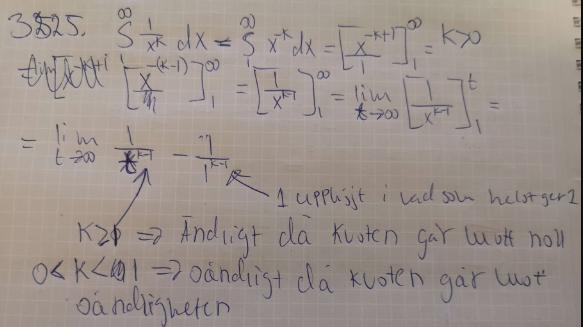 3525. ∞∫1 1/x^k dx = ∞∫1 x^-k dx = [x^-k+1 / 1]∞1 = k>0
[x^-(k-1) / 1]∞1 = [1/x^k-1]∞1 = lim t→∞ [1/x^k-1]t1 =
= lim t→∞ 1/t^k-1 - 1/1^k-1
1 upphöjt i vad som helst ger 1
k>1 ⇒ Ändligt då kvoten går mott noll
0<k<1 ⇒ oändligt då kvoten går mott
oändligheten